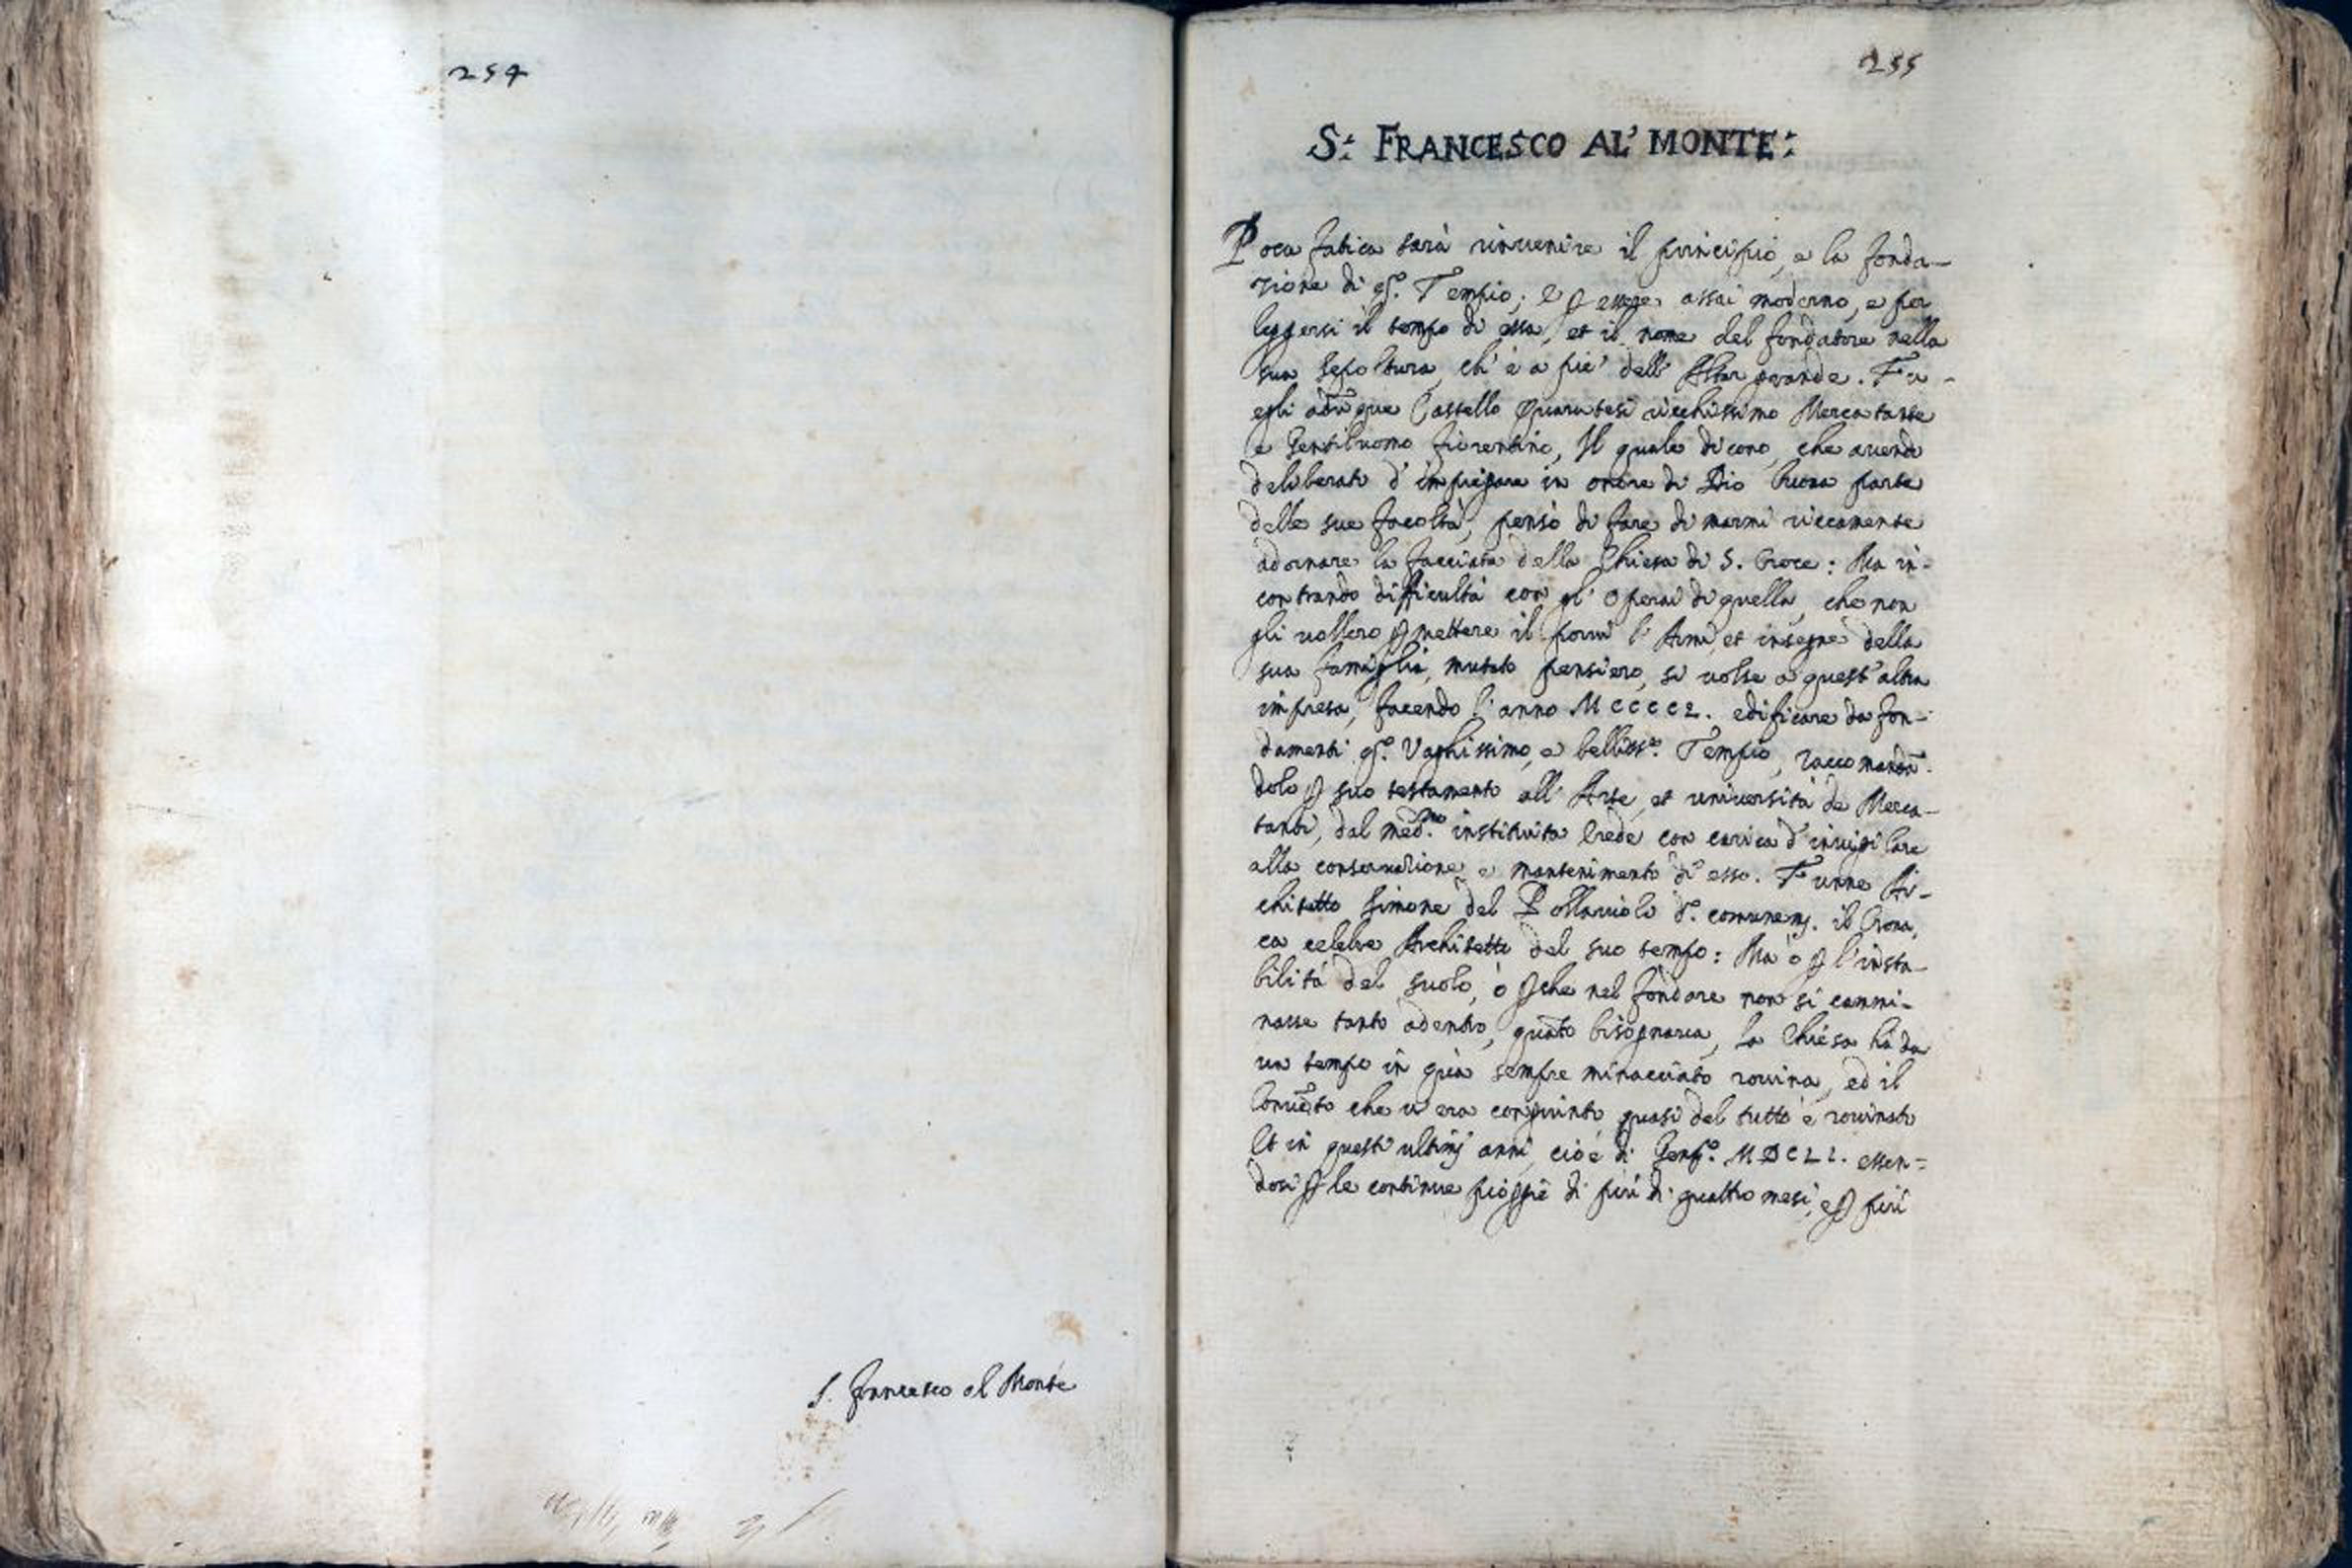 254
S. Francesco al Monte
255
S.: FRANCESCO AL' MONTE:
Poca fatica sarà rinvenire il principio, e la fonda-
zione di qs.o Tempio; e ꝑ essere assai moderno, e per
leggersi il tempo di essa, et il nome del fondatore nella
sua sepoltura, ch' è a pie' dell' Altar grande. Fu
egli adũque Castello Quaratesi ricchissimo Mercatante
e Gentiluomo fiorentino, Il quale dicono, che avendo
deliberato d' impiegare in onore di Dio buona parte
delle sue facoltà, pensò di fare di marmi riccamente
adornare la facciata della Chiesa di S. Croce: Ma in-
contrando difficultà con gl' Operai di quella, che non
gli vollero ꝑmettere il porvi l' Armi, et insegne della
sua famiglia, mutato pensiero, si volse a quest' altra
impresa, facendo l' anno MCCCCL. edificare da fon-
damenti qs.o Vaghissimo, e belliss.o Tempio, raccomandã-
dolo ꝑ suo testamento all' Arte, et università de Merca-
tanti, dal med.mo instituita erede con carica d' invigilare
alla conservazione e mantenimento di esso. Funne Ar-
chitetto Simone del Pollaiuolo d.o comunem. il Crona,
ca celebre Architetto del suo tempo: Ma ò ꝑ l' insta-
bilità del suolo, ò ꝑche nel fondare non si cammi-
nasse tanto adentro, quãto bisognava, la Chiesa hà da
un tempo in quà sempre minacciato rovina, ed il
Convẽto che v' era congiunto quasi del tutto è rovinato
Et in questi ultimi anni, cioè di Genn.o MDCLI. essen-
dosi ꝑ le continue pioggie di più di quattro mesi, e ꝑ più